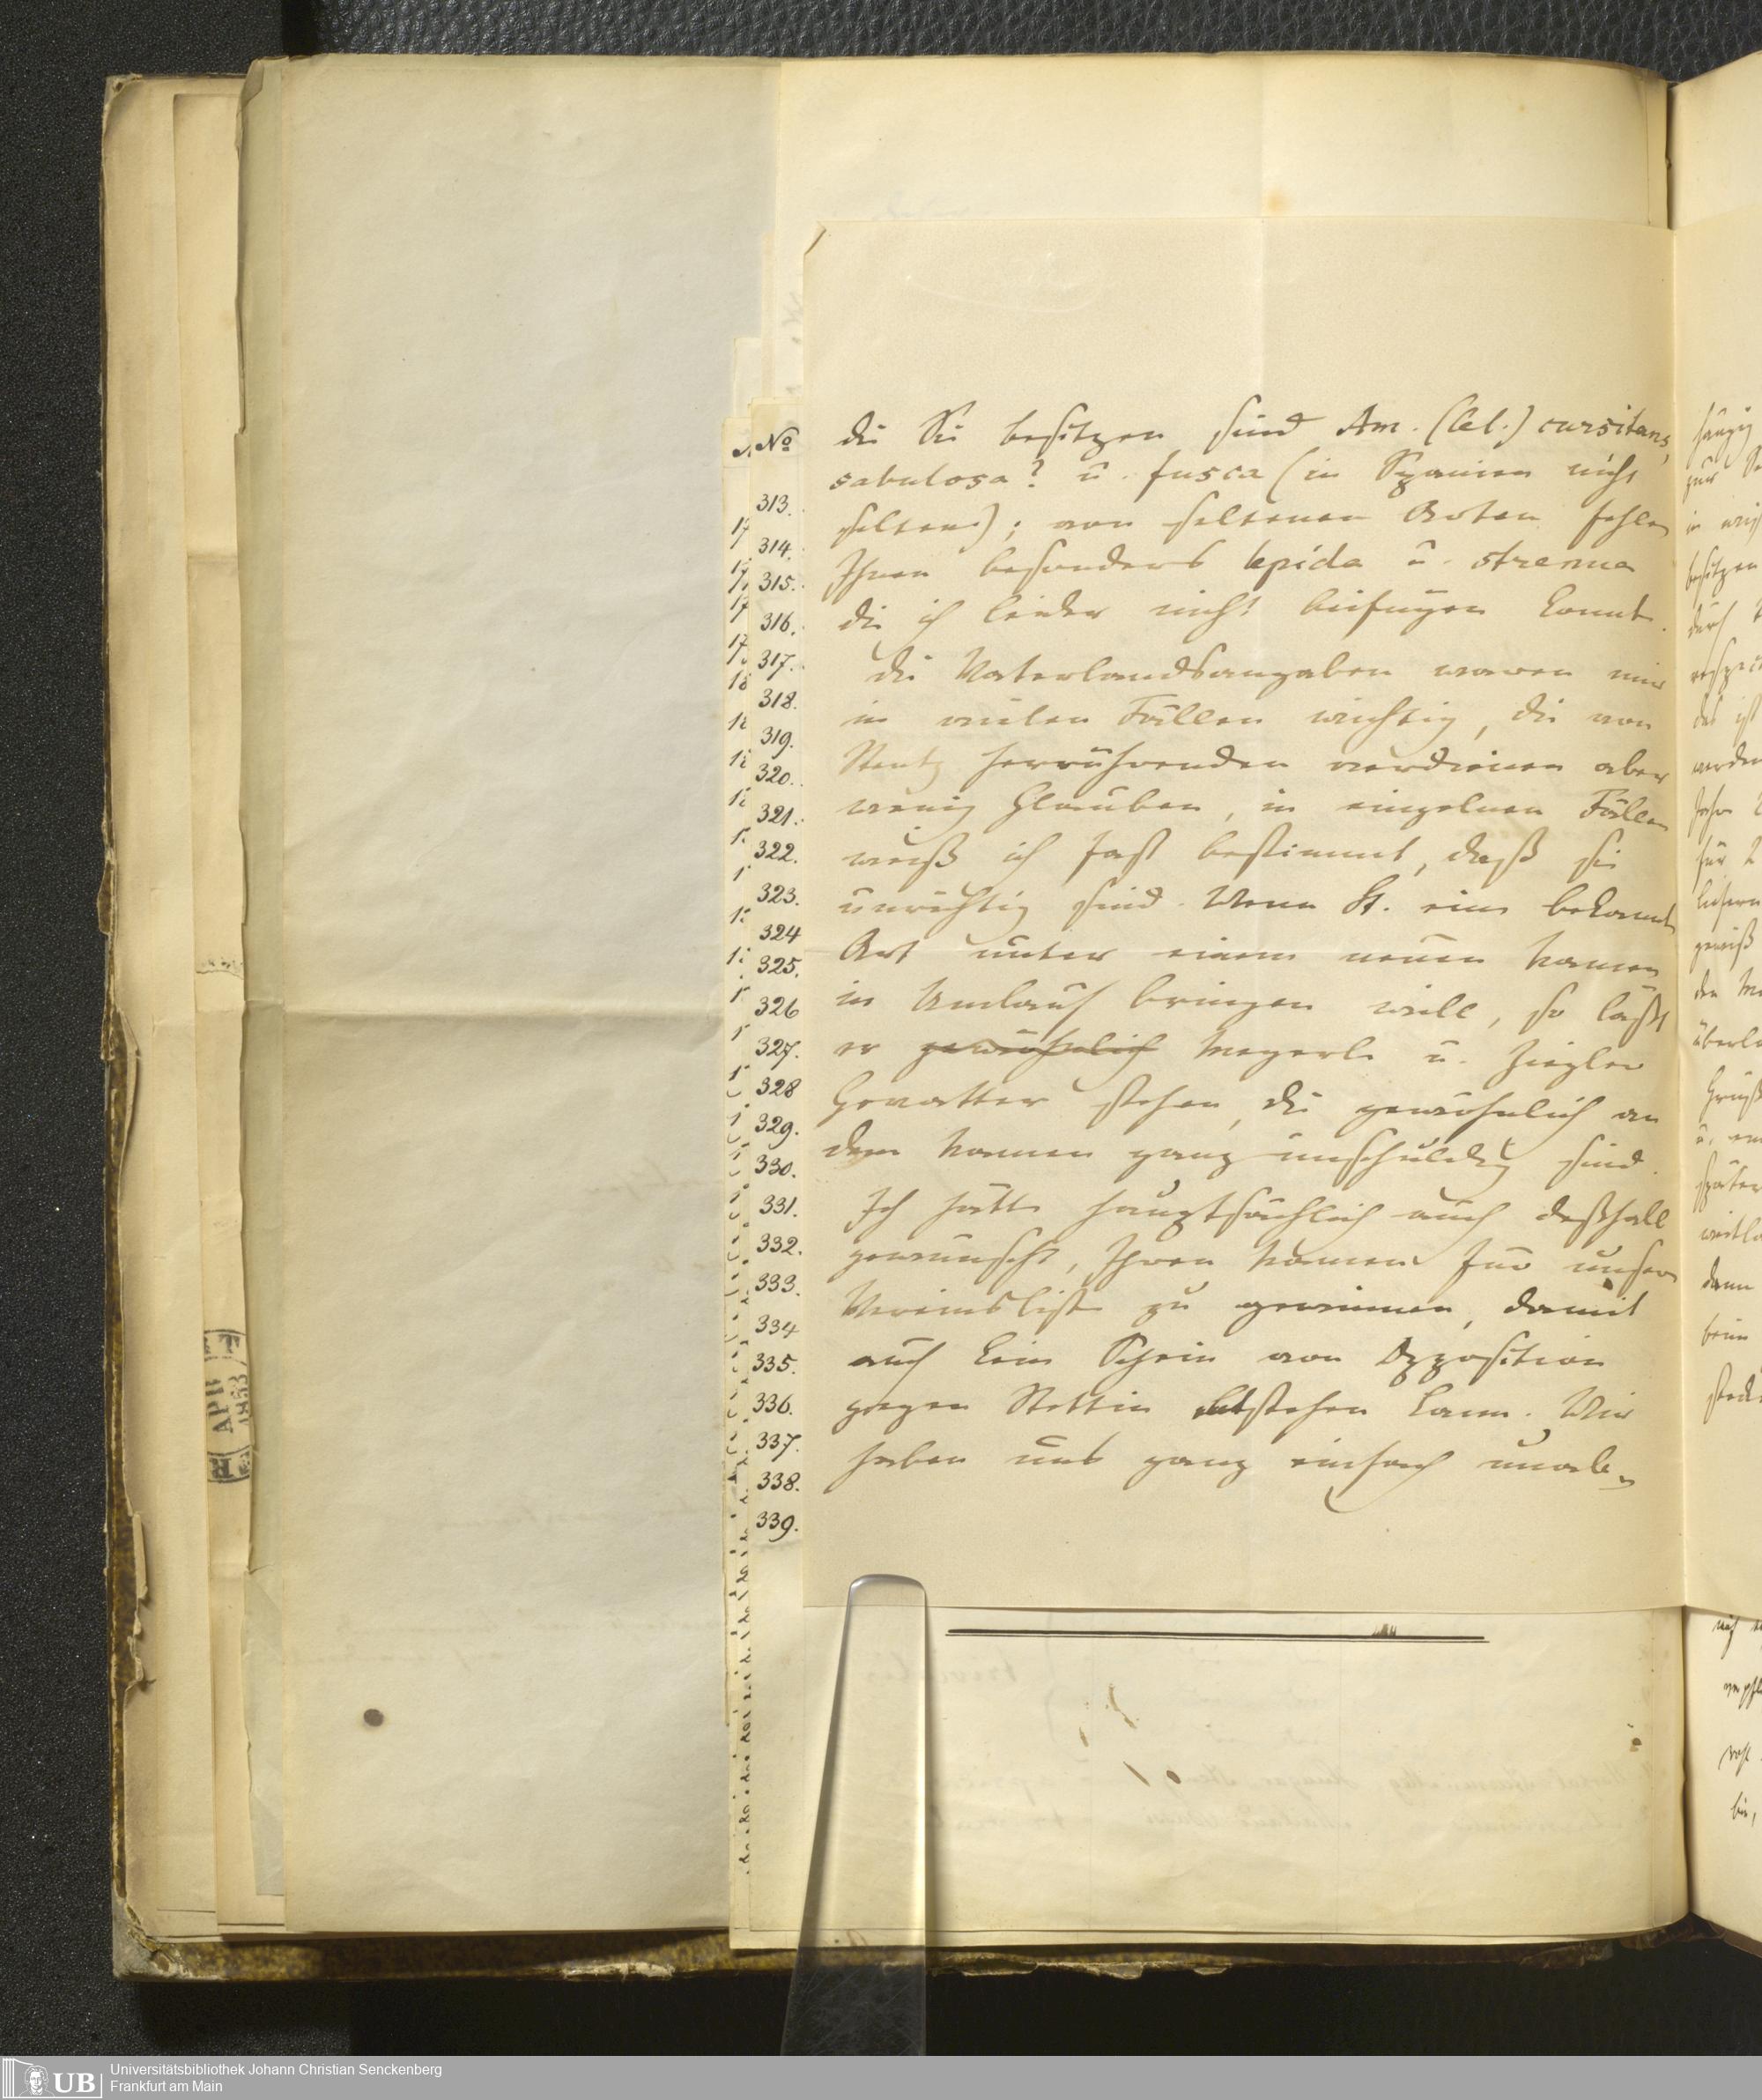 die Sie besitzen sind Am. (Cel.) cursitans,
sabulosa? u. fusca (in Spanien nicht
selten); von seltenen Arten fehlen
Ihnen besonders lepida u. strenua
die ich leider nicht beifügen konnte.
Die Vaterlandsangaben waren mir
in vielen Fällen wichtig, die von
Stentz herrührenden verdienen aber
wenig Glauben, in einzelnen Fällen
weiß ich fast bestimmt, daß sie
unrichtig sind. Wenn St. eine bekannte
Art unter einem neuen Namen
in Umlauf bringen will, so läßt
er gewöhnlich Megerle u. Ziegler
Gevatter stehen, die gewöhnlich an
dem Namen ganz unschuldig sind.
Ich hätte hauptsächlich auch deßhalb
gewünscht, Ihren Namen für unsere
Vereinsliste zu gewinnen, damit
auch kein Schein von Opposition
gegen Stettin entstehen kann. Wir
haben uns ganz einfach unab-
No
313.
314.
315.
316.
317.
318.
319.
320.
321.
322.
323.
324
325.
326
327.
328
329.
330.
331.
332.
333.
334
335.
336.
337.
338.
339.
APR
1853
häufig
besitzen
durch
werden
für
gewiß
später
dann
beim
UB
Universitätsbibliothek Johann Christian Senckenberg
Frankfurt am Main